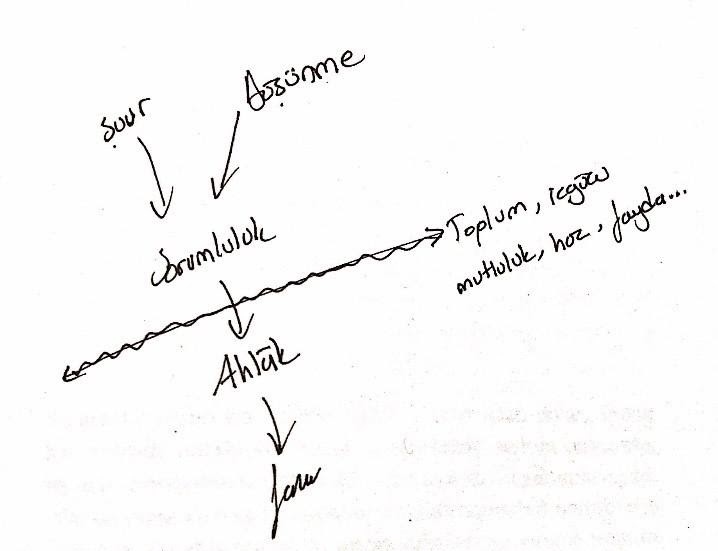 Şuur
Düşünme
Sorumluluk
Toplum, içgüdü
mutluluk, haz, fayda...
Ahlâk